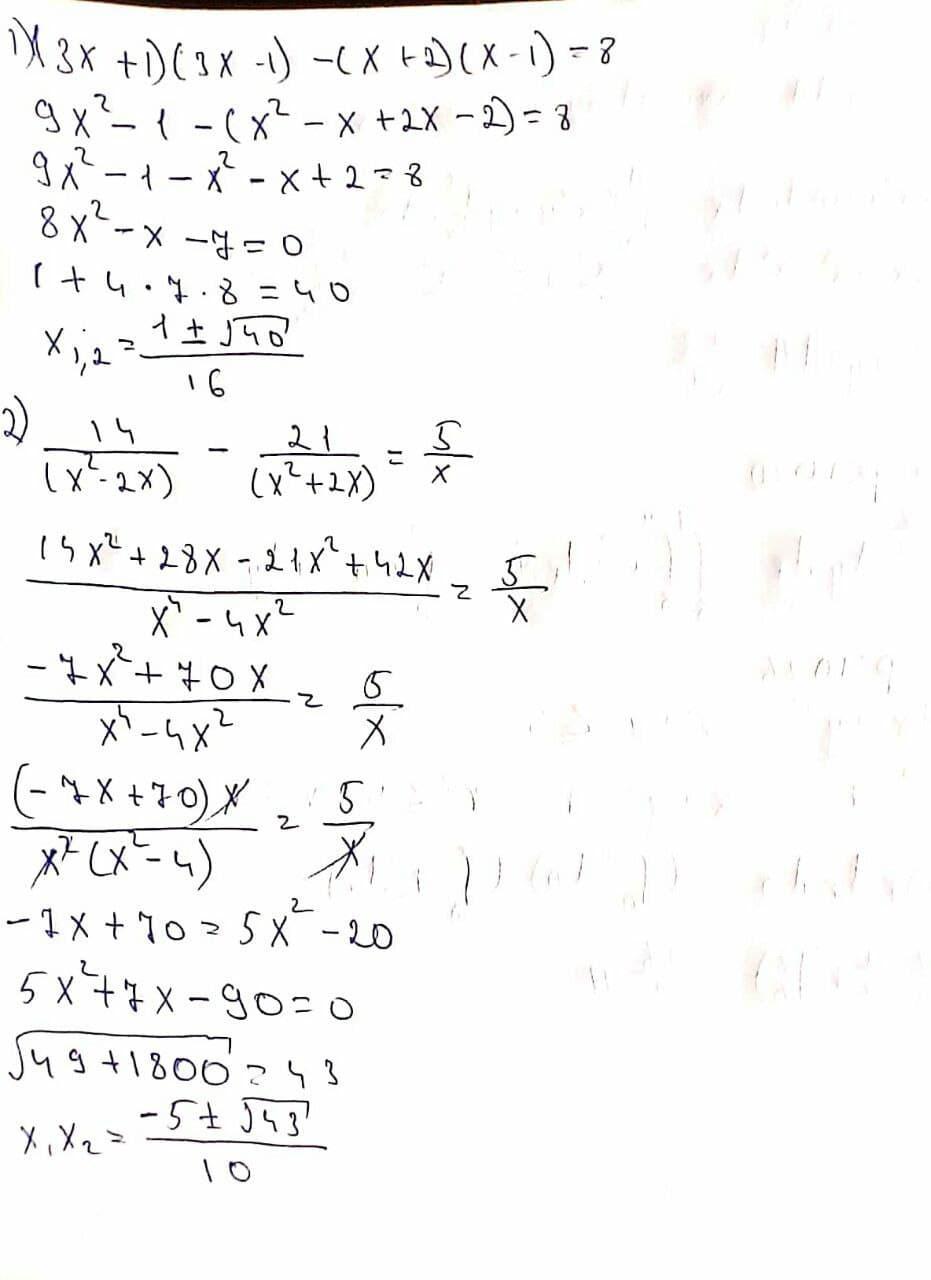 1) (3x+1)(3x-1) -(x+2)(x-1)=8
9x²-1-(x²-x+2x-2)=8
9x²-1-x²-x+2=8
8x²-x-7=0
1+4·7·8=40
x₁,₂=(1±√40)/16
2) 14/(x²-2x) - 21/(x²+2x) = 5/x
(14x²+28x-21x²+42x)/(x⁴-4x²) = 5/x
(-7x²+70x)/(x⁴-4x²) = 5/x
((-7x+70)x)/(x²(x²-4)) = 5/x
-7x+70=5x²-20
5x²+7x-90=0
√(49+1800)=43
x₁x₂=(-5±√43)/10